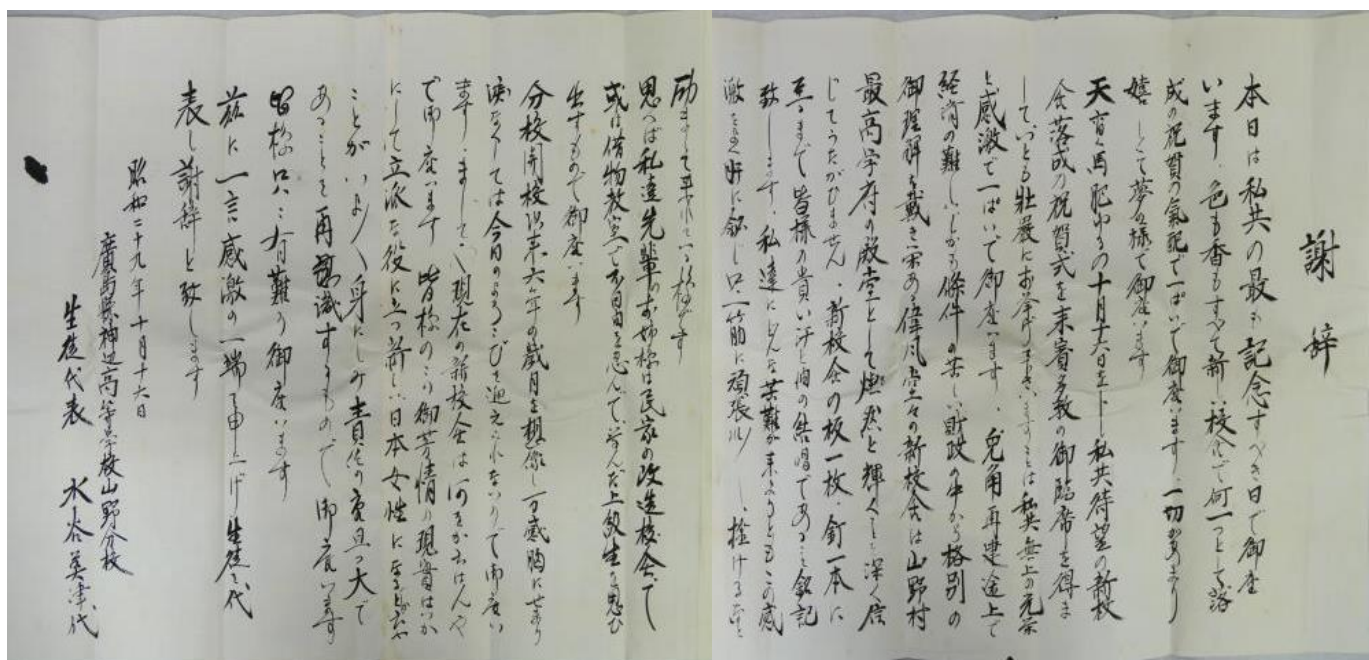 謝辞
本日は私共の最も記念すべき日で御座
います、色も香もすべて新しい校舎で何一つとして落
成の祝賀の氣配で一ぱいで御座います、一切があまり
嬉しくて夢の様で御座います
天高く馬肥ゆるの十月十六日をトし私共待望の新校
舎落成の祝賀式を来賓多数の御臨席を得ま
して、いとも壮嚴にお挙げ下さいますことは私共無上の光栄
と感激で一ぱいで御座います、兎角再建途上で
経済の難しいしかも條件の苦しい財政の中から格別の
御理解を戴き栄ある偉風堂々の新校舎は山野村
最高学府の殿堂として燦然と輝くことを深く信
じてうたがひません、新校舎の板一枚、釘一本に
至るまで皆様の貴い汗と油の結唱であると銘記
致します、私達はどんな苦難が来ようともこの感
激を肝に銘し只一筋に頑張り
思へば私達先輩のお姉様は民家の改造校舎で
或は借物教室で不自由を忍んで学んだ上級生を思ひ
出すもので御座います
分校開校以来六年の歳月を想像し万感胸にせまり
涙なくしては今日のよろこびを迎えられないので御座い
ます、まして現在の新校舎は何をか云はんや
で御座います 皆様のこの御芳情の現實はいか
にして立派な役に立つ新しい日本女性になるべきや
ことがいよ〳〵身にしみ責任の重且つ大で
あることを再認識するもので御座います
皆様只々有難う御座います
茲に一言感激の一端を申上げ生徒を代
表し謝辞と致します
昭和二十九年十月十六日
廣島縣神辺高等学校山野分校
生徒代表 水谷美津代